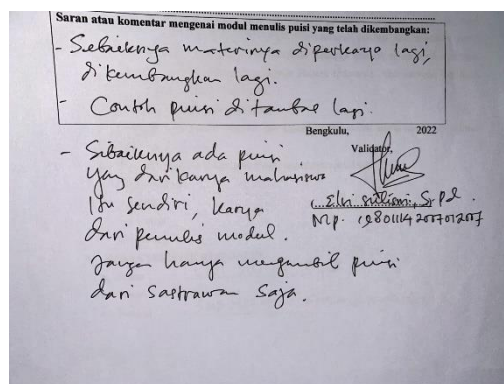 Saran atau komentar mengenai modul menulis puisi yang telah dikembangkan:
- Sebaiknya materinya diperkaya lagi,
dikembangkan lagi.
- Contoh puisi ditambah lagi.
Bengkulu, 2022
Validator,
- Sibaiknya ada puisi
yang dari karya mahasiswa
itu sendiri, karya
dari penulis modul.
Jangan hanya mengambil puisi
dari sastrawan saja.
S.Pd.
Nip.